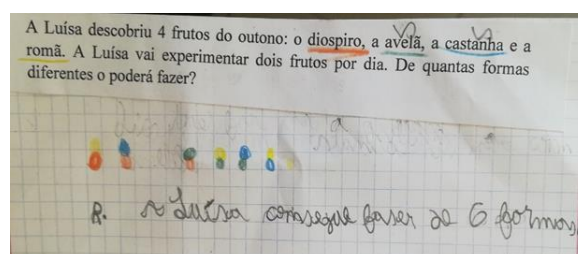 A Luísa descobriu 4 frutos do outono: o diospiro, a avelã, a castanha e a
romã. A Luísa vai experimentar dois frutos por dia. De quantas formas
diferentes o poderá fazer?
R. A Luísa consegue faser de 6 formas